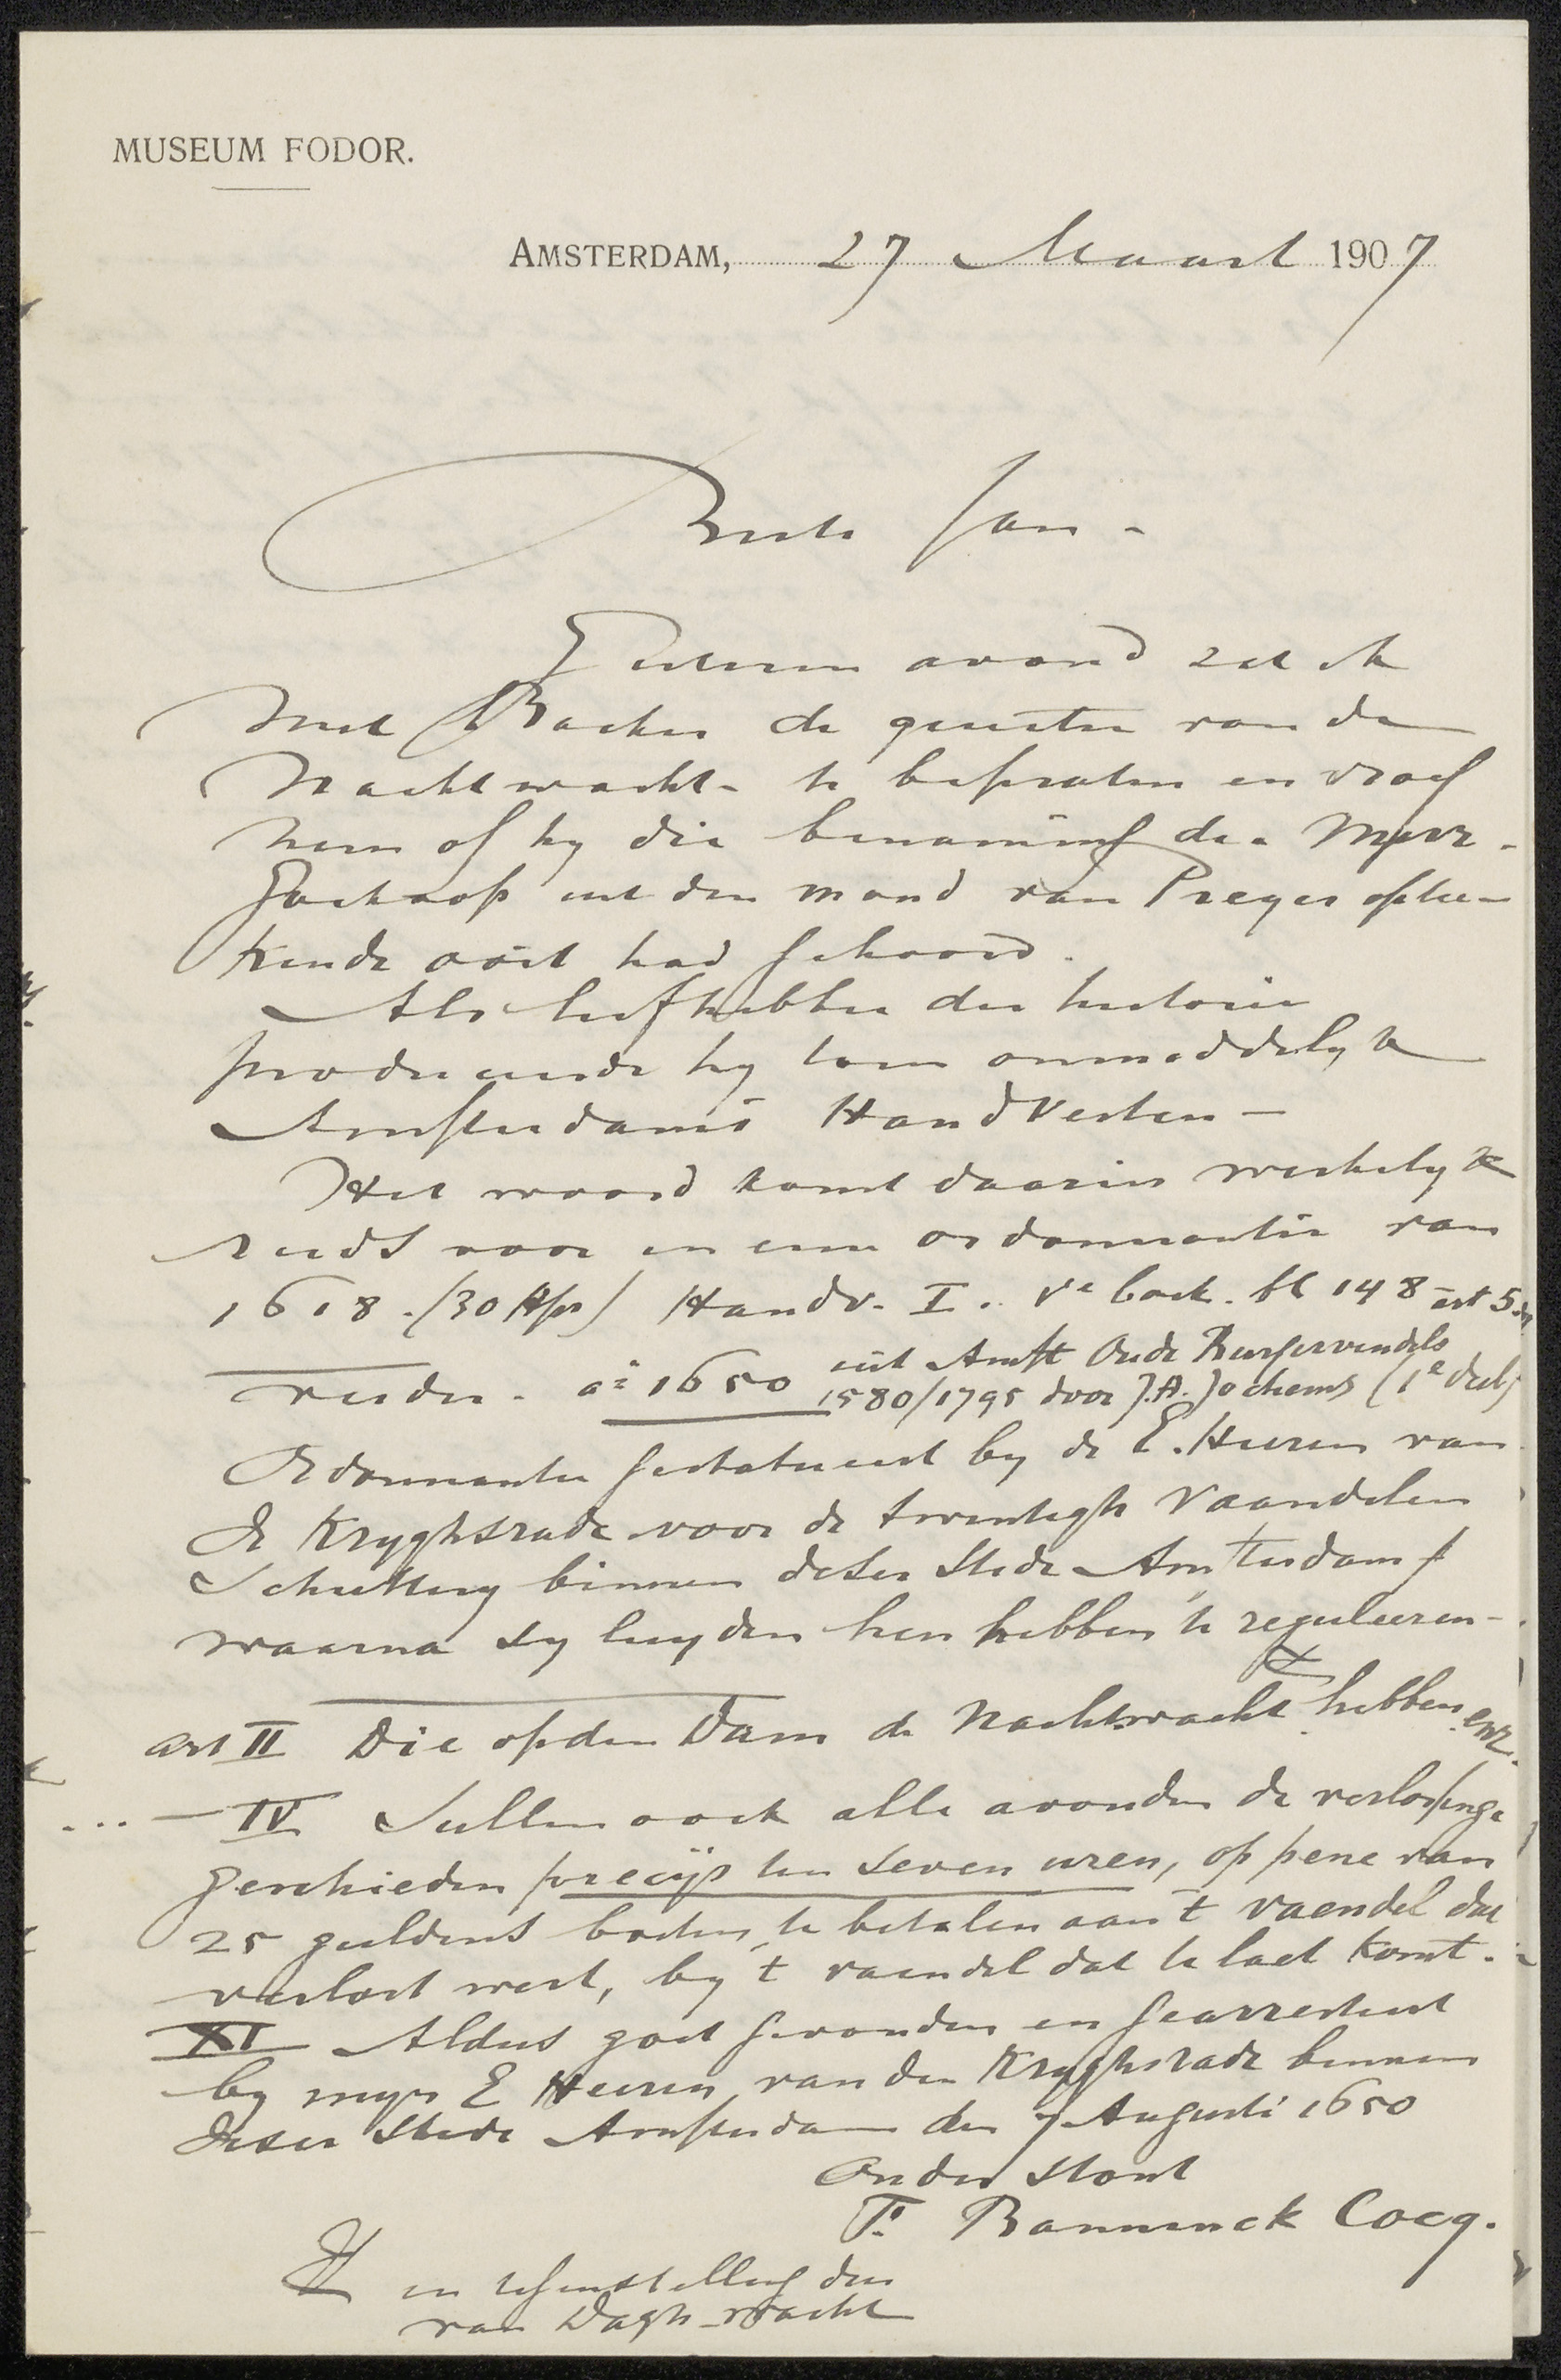 MUSEUM FODOR.
AMSTERDAM, 27 Maart 1907
Beste Jan -
Gisteren avond zat ik
met Backer de quaestie van de
Nachtwacht - te bepraten en vroeg
hem of hy die benaming de Mevr.
Goekoop uit den mond van Preyer opte-
kende ooit had gehoord.
Als liefhebber der historie
produceerde hy toen onmiddelyk
Amsterdams Handvesten -
Het woord komt daarin werkelyk
reeds voor in een ordonnantie van
1618. (30 Apr) Handv. I. Ve boek. bl 148 art 5.
verder. ao 1650 uit Amst Oude Burgervendels
1580/1795 door J.A. Jochems (1e deel)
Ordonnantie gestatueert by de E. Heeren van
de Kryghsrade voor de twentigh Vaandelen
Schuttery binnen deser Stede Amsterdam
waarna sy luyden hen hebben te reguleeren -
art II Die op den Dam de Nachtwacht hebben enz.
... - IV Sullen oock alle avonden de verlossinge
geschieden precijs ten seven uren, op pene van
25 guldens boeten, te betalen aan 't vaendel dat
verlost wert, by 't vaendel dat te laet komt.
XI Aldus goet gevonden en gearresteert
by myn E Heeren van den Kryghsrade binnen
deser Stede Amsterdam den 7 Augusti 1650
Onder stont
F. Banninck Cocq.
in tegenstelling der
van Dagh-wacht